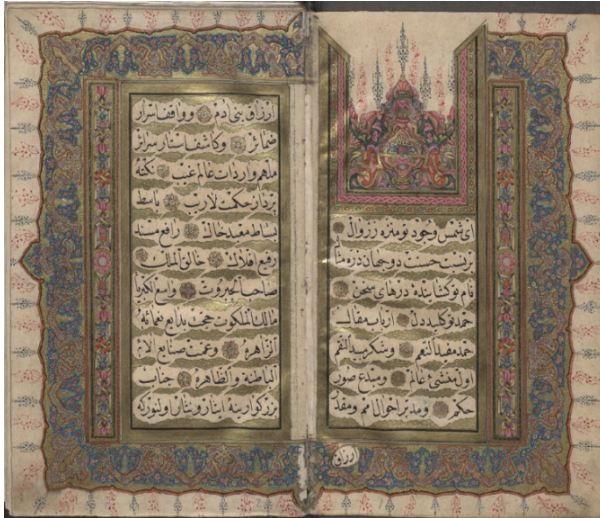 ای شمس وجود تو منزه ز زوال
حسنت دو جهان ذره مثال
نام تو کشاینده درهای سخن
حمد تو کلید دل ارباب مقال
حمد مفید النعم و شکر مبید النقم
اول منشئ عالم و مبدع صور
حکم و مدبر احوال امم و مقدر
ارزاق
ارزاق بنی آدم و واقف اسرار
ضمائر و کاشف استار سرائر
ملهم واردات عالم غیب نکته
پرداز حکمت لاریب باسط
بساط خاك رافع مسند
رفیع افلاك خالق الملك
صاحب الجبروت واسع الکبریا
مالك الملکوت بدایع نعمائه
الزاهره وعمت صنایع
الباطنه والظاهره جناب
بزرکوارینه ایثار و نثار اولنور که